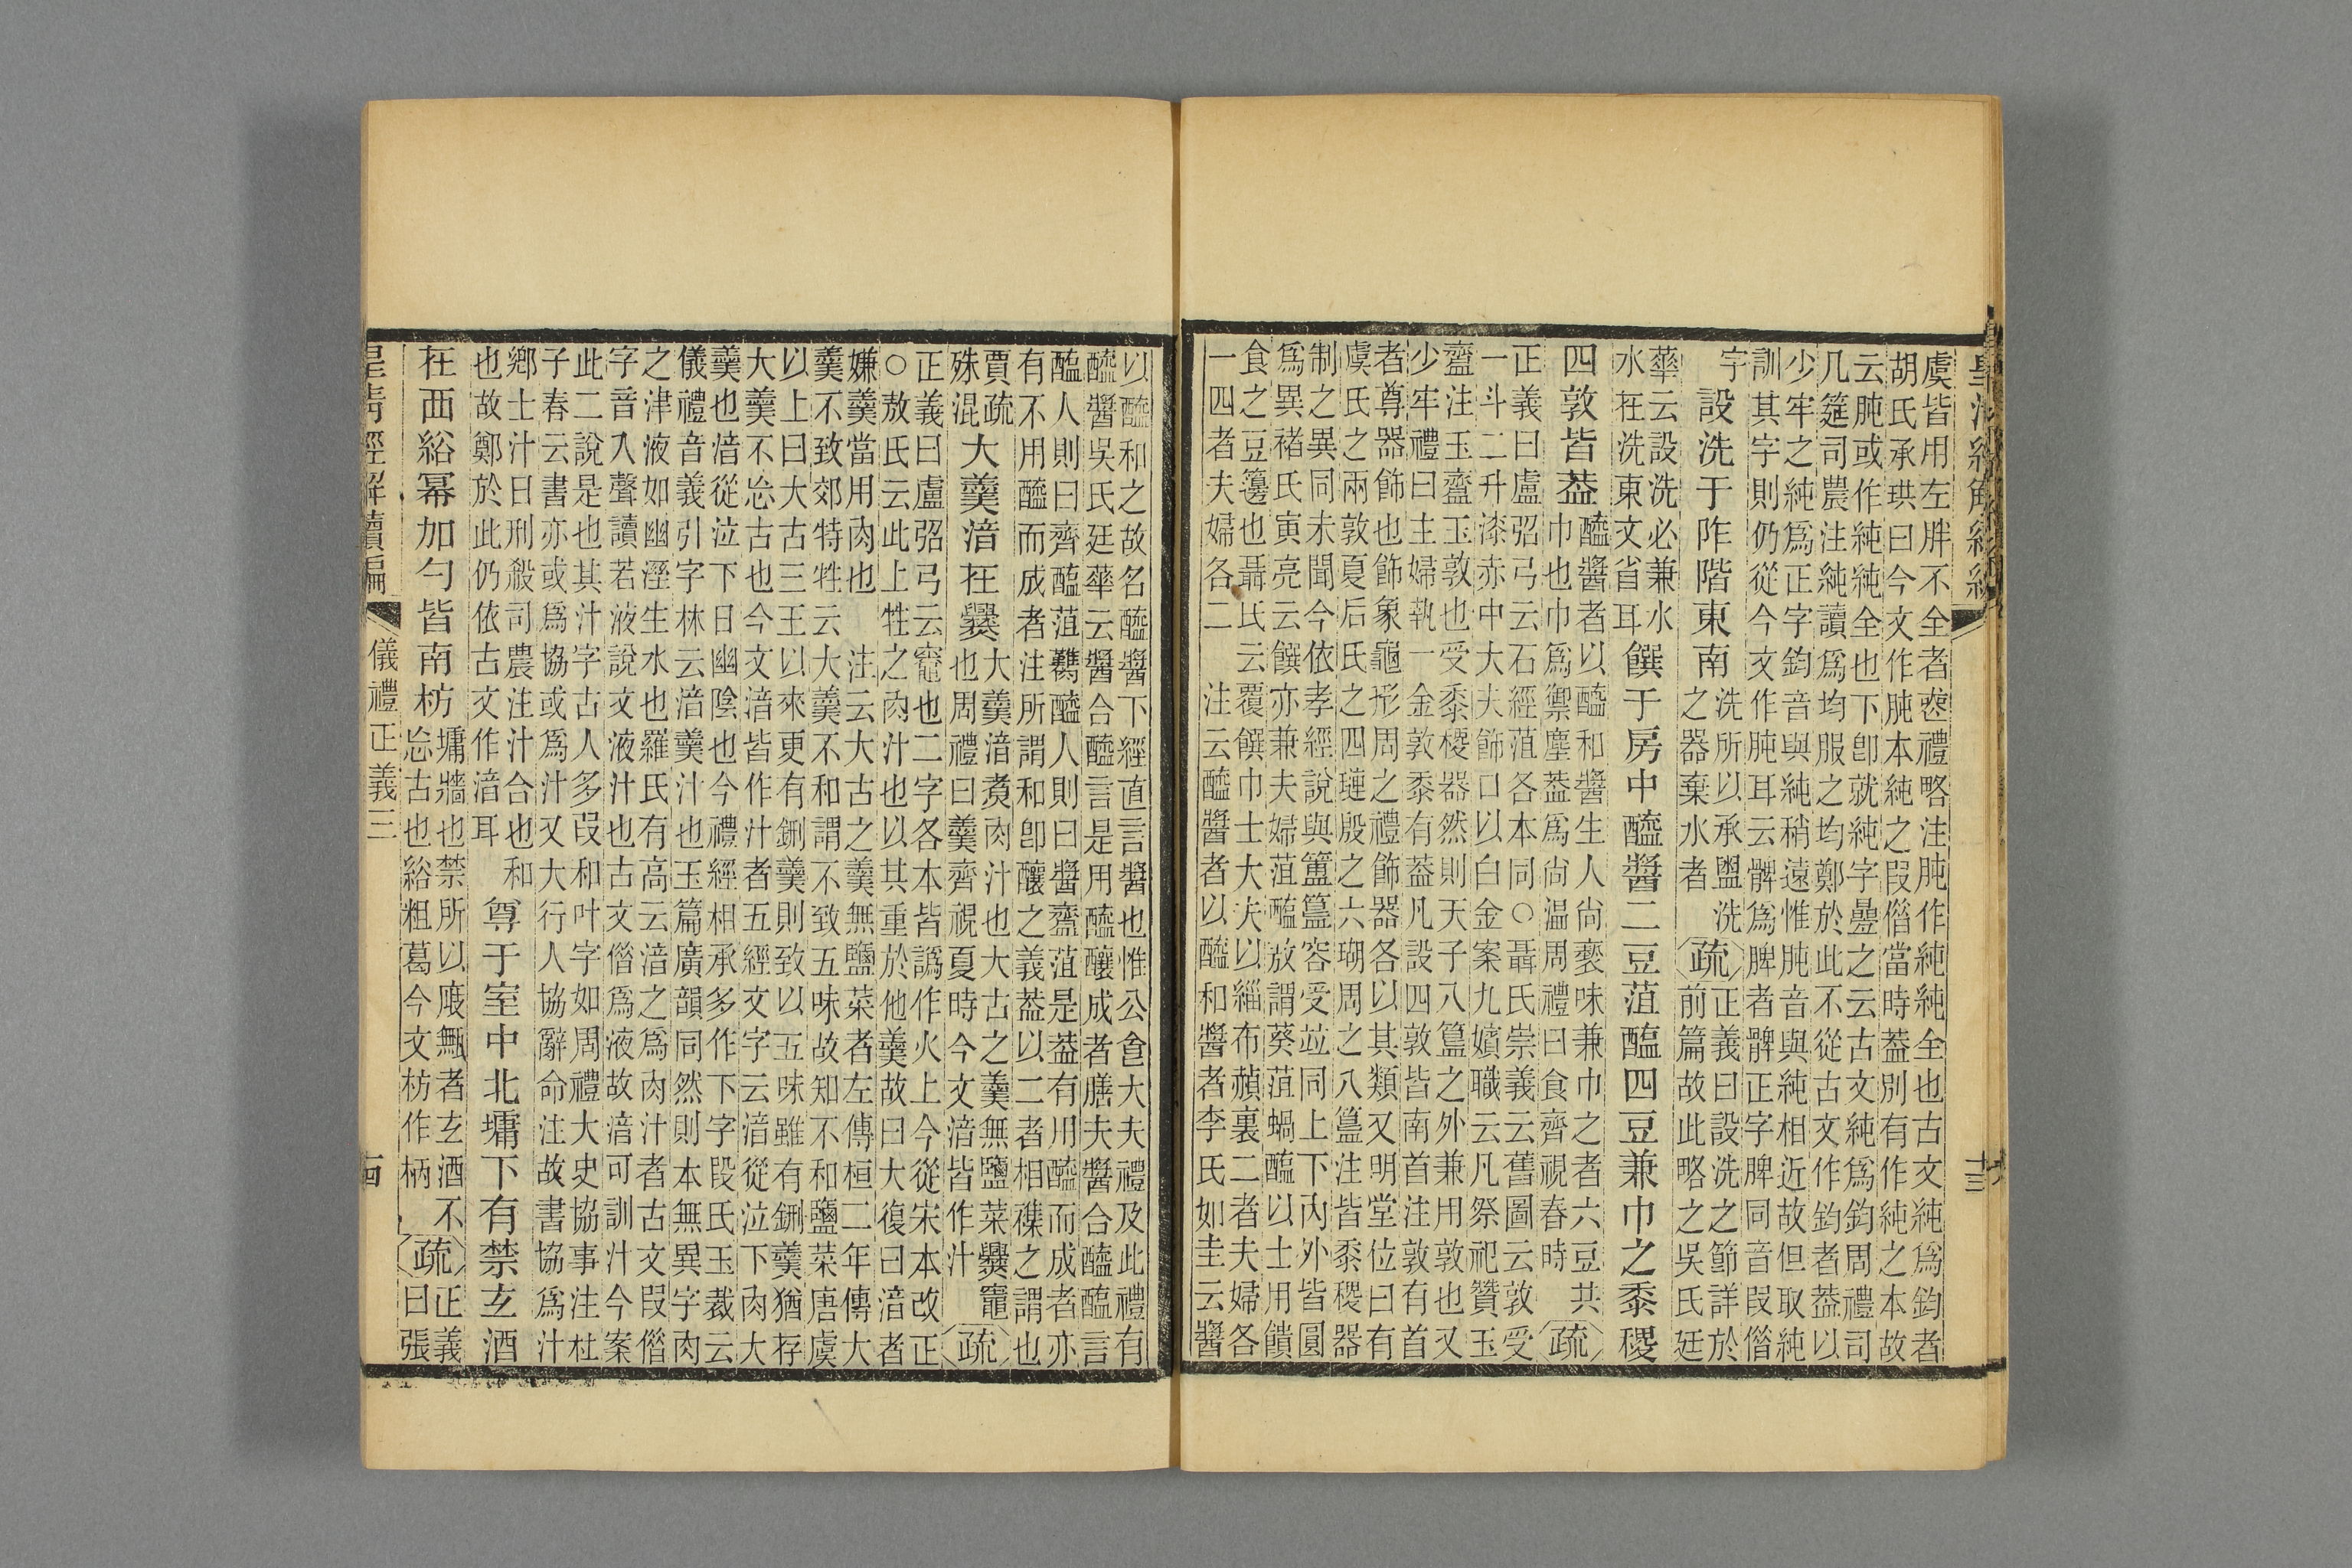 虞皆用左胖不全者䘮禮略注肫作純純全也古文純爲鈞者
胡氏承珙曰今文作肫本純之叚借當時葢別有作純之本故
云肫或作純純全也下卽就純字疊之云古文純爲鈞周禮司
几筵司農注純讀爲均服之均鄭於此不從古文作鈞者葢以
少牢之純爲正字鈞音與純稍遠惟肫音與純相近故但取純
訓其字則仍從今文作肫耳云髀爲脾者髀正字脾同音叚借
字
設洗于阼階東南
洗所以承盥洗
之器棄水者
疏
正義曰設洗之節詳於
前篇故此略之吳氏廷
華云設洗必兼水
水在洗東文省耳
饌于房中醯醬二豆菹醢四豆兼巾之黍稷
四敦皆葢
醯醬者以醯和醬生人尙褻味兼巾之者六豆共
巾也巾爲禦塵葢爲尙温周禮曰食齊視春時
疏
正義曰盧弨弓云石經菹各本同○聶氏崇義云舊圖云敦受
一斗二升漆赤中大夫飾口以白金案九嬪職云凡祭祀贊玉
齍注玉齍玉敦也受黍稷器然則天子八簋之外兼用敦也又
少牢禮曰主婦執一金敦黍有葢凡設四敦皆南首注敦有首
者尊器飾也飾象龜形周之禮飾器各以其類又明堂位曰有
虞氏之兩敦夏后氏之四璉殷之六瑚周之八簋注皆黍稷器
制之異同未聞今依孝經說與簠簋容受竝同上下內外皆圓
爲異褚氏寅亮云饌亦兼夫婦菹醢放謂葵菹蝸醢以士用饋
食之豆籩也聶氏云覆饌巾士大夫以緇布赬裏二者夫婦各
一四者夫婦各二　注云醯醬者以醯和醬者李氏如圭云醬
以醯和之故名醯醬下經直言醬也惟公食大夫禮及此禮有
醯醬吳氏廷華云醬合醯言是用醯釀成者膳夫醬合醯醢言
醢人則曰齊醢菹臡醯人則曰醬齏菹是葢有用醯而成者亦
有不用醯而成者注所謂和卽釀之義葢以二者相襍之謂也
賈疏
殊混
大羹湆在爨
大羹湆煑肉汁也大古之羹無鹽菜爨竈
也周禮曰羹齊視夏時今文湆皆作汁
疏
正義曰盧弨弓云竈也二字各本皆譌作火上今從宋本改正
○敖氏云此上牲之肉汁也以其重於他羹故曰大復曰湆者
嫌羹當用肉也　注云大古之羹無鹽菜者左傳桓二年傳大
羹不致郊特牲云大羹不和謂不致五味故知不和鹽菜唐虞
以上曰大古三王以來更有鉶羹則致以五味雖有鉶羹猶存
大羹不忘古也今文湆皆作汁者五經文字云湆從泣下肉大
羹也湆從泣下日幽陰也今禮經相承多作下字段氏玉裁云
儀禮音義引字林云湆羹汁也玉篇廣韻同然則本無異字肉
之津液如幽溼生水也羅氏有高云湆之爲肉汁者古文叚借
字音入聲讀若液說文液汁也古文借爲液故湆可訓汁今案
此二說是也其汁字古人多叚和叶字如周禮大史協事注杜
子春云書亦或爲協或爲汁又大行人協辭命注故書協爲汁
鄉士汁日刑殺司農注汁合也和
也故鄭於此仍依古文作湆耳
尊于室中北墉下有禁玄酒
在西綌冪加勺皆南枋
墉牆也禁所以庪甒者玄酒不
忘古也綌粗葛今文枋作柄
疏
正義
曰張
儀禮正義三